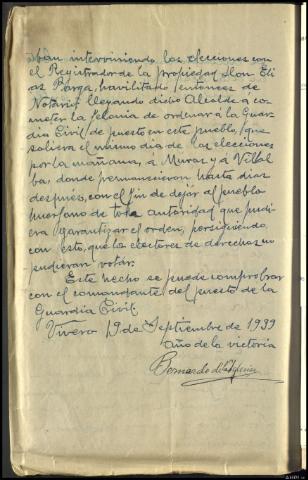 iban interviniendo las elecciones con
el Registrador de la propiedad Don Eli
as Barga, havilitado entonces de
Notario llegando dicho Alcalde a co-
meter la felonia de ordenar á la Guar-
dia Civil de puesto en este pueblo, que
saliera el mismo dia de las elecciones
por la mañana, a Muras y á Villal
ba, donde permanecieron hasta dias
después, con el fin de dejar al pueblo
huerfano de toda autoridad que pudi
era garantizar el orden, persiguiendo
con esto, que los electores de derechas no
pudieran votar.
Este hecho se puede comprobar
con el comandante del puesto de la
Guardia Civil.
Vivero 19 de Septiembre de 1939
Año de la victoria
Bernardo